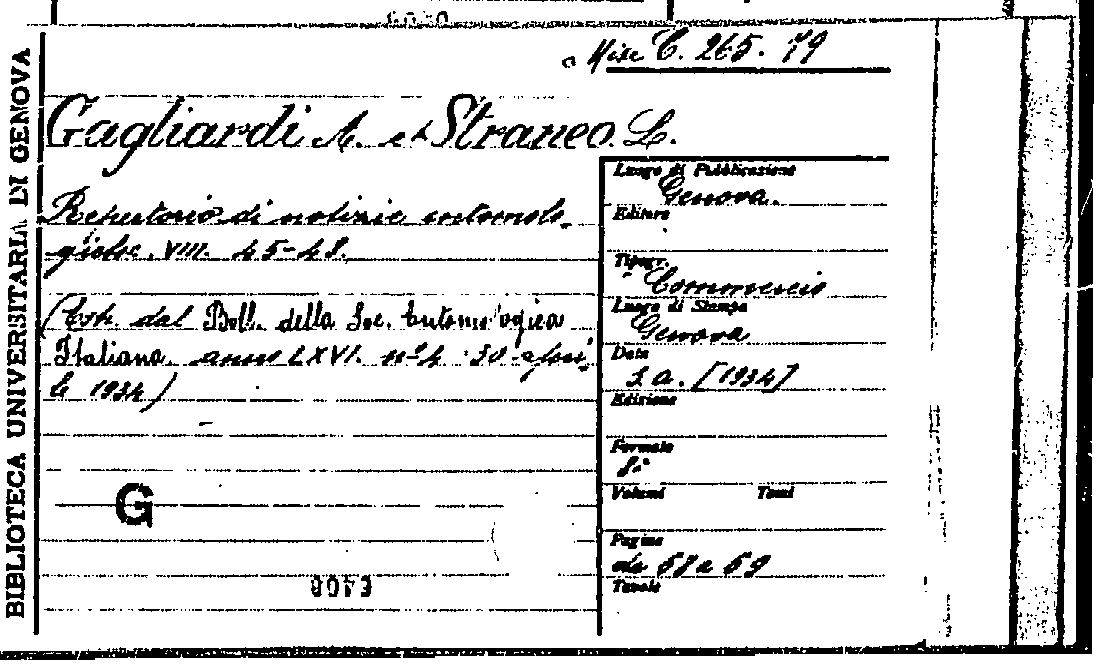 Misc C. 265. 79
BIBLIOTECA UNIVERSITARIA DI GENOVA
Gagliardi A. et Straneo. L.
Repertorio di notizie entomolo-
giche. VIII. 45-48.
(Estr. dal Boll. della Soc. Entomologica
Italiana. anno LXVI. nº 4. 30 april
le 1934)
G
Luogo di Pubblicazione
Genova.
Editore
Tipogr.
Commercio
Luogo di Stampa
Genova
Data
s. a. [1934]
Edizione
Formato
8º
Volumi Tomi
Pagine
da 57 a 59
Tavole